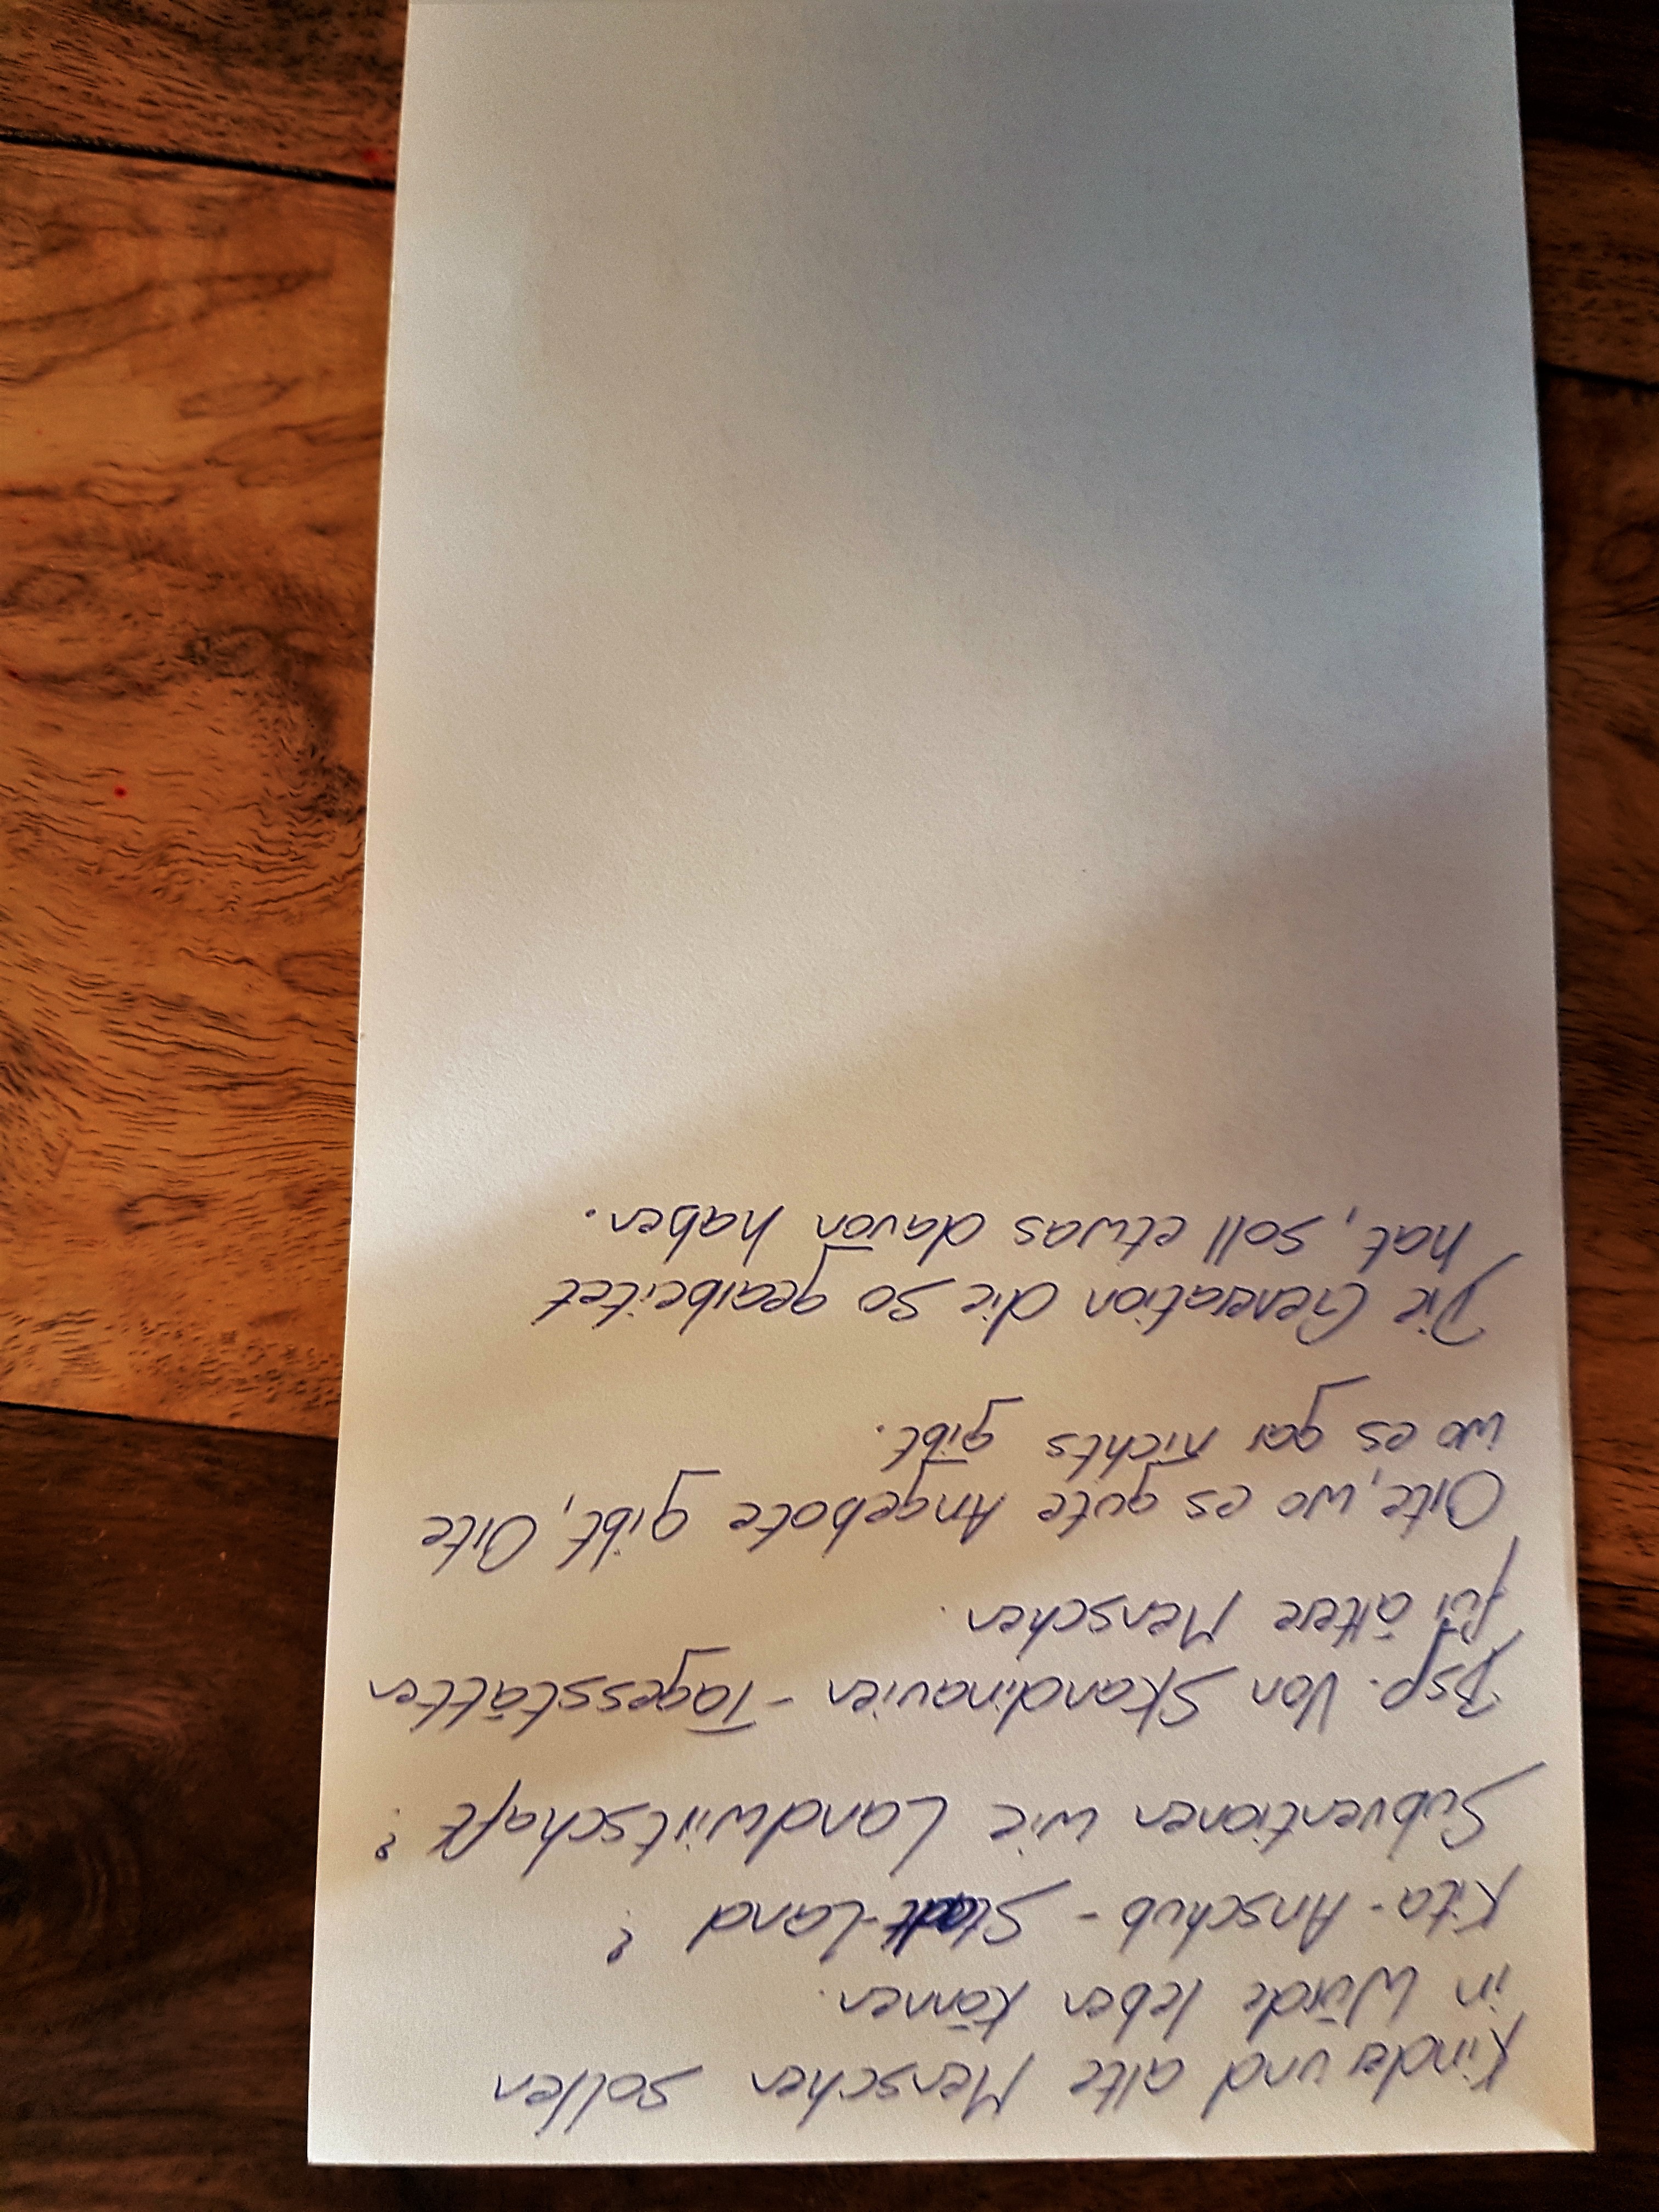 Kinder und alte Menschen sollen
in Würde leben können.
Kita-Anschub - Stadt-Land ?
Subventionen wie Landwirtschaft ?
Bsp. Von Skandinavien - Tagesstätten
für ältere Menschen.
Orte, wo es gute Angebote gibt, Orte
wo es gar nichts gibt.
Die Generation die so gearbeitet
hat, soll etwas davon haben.